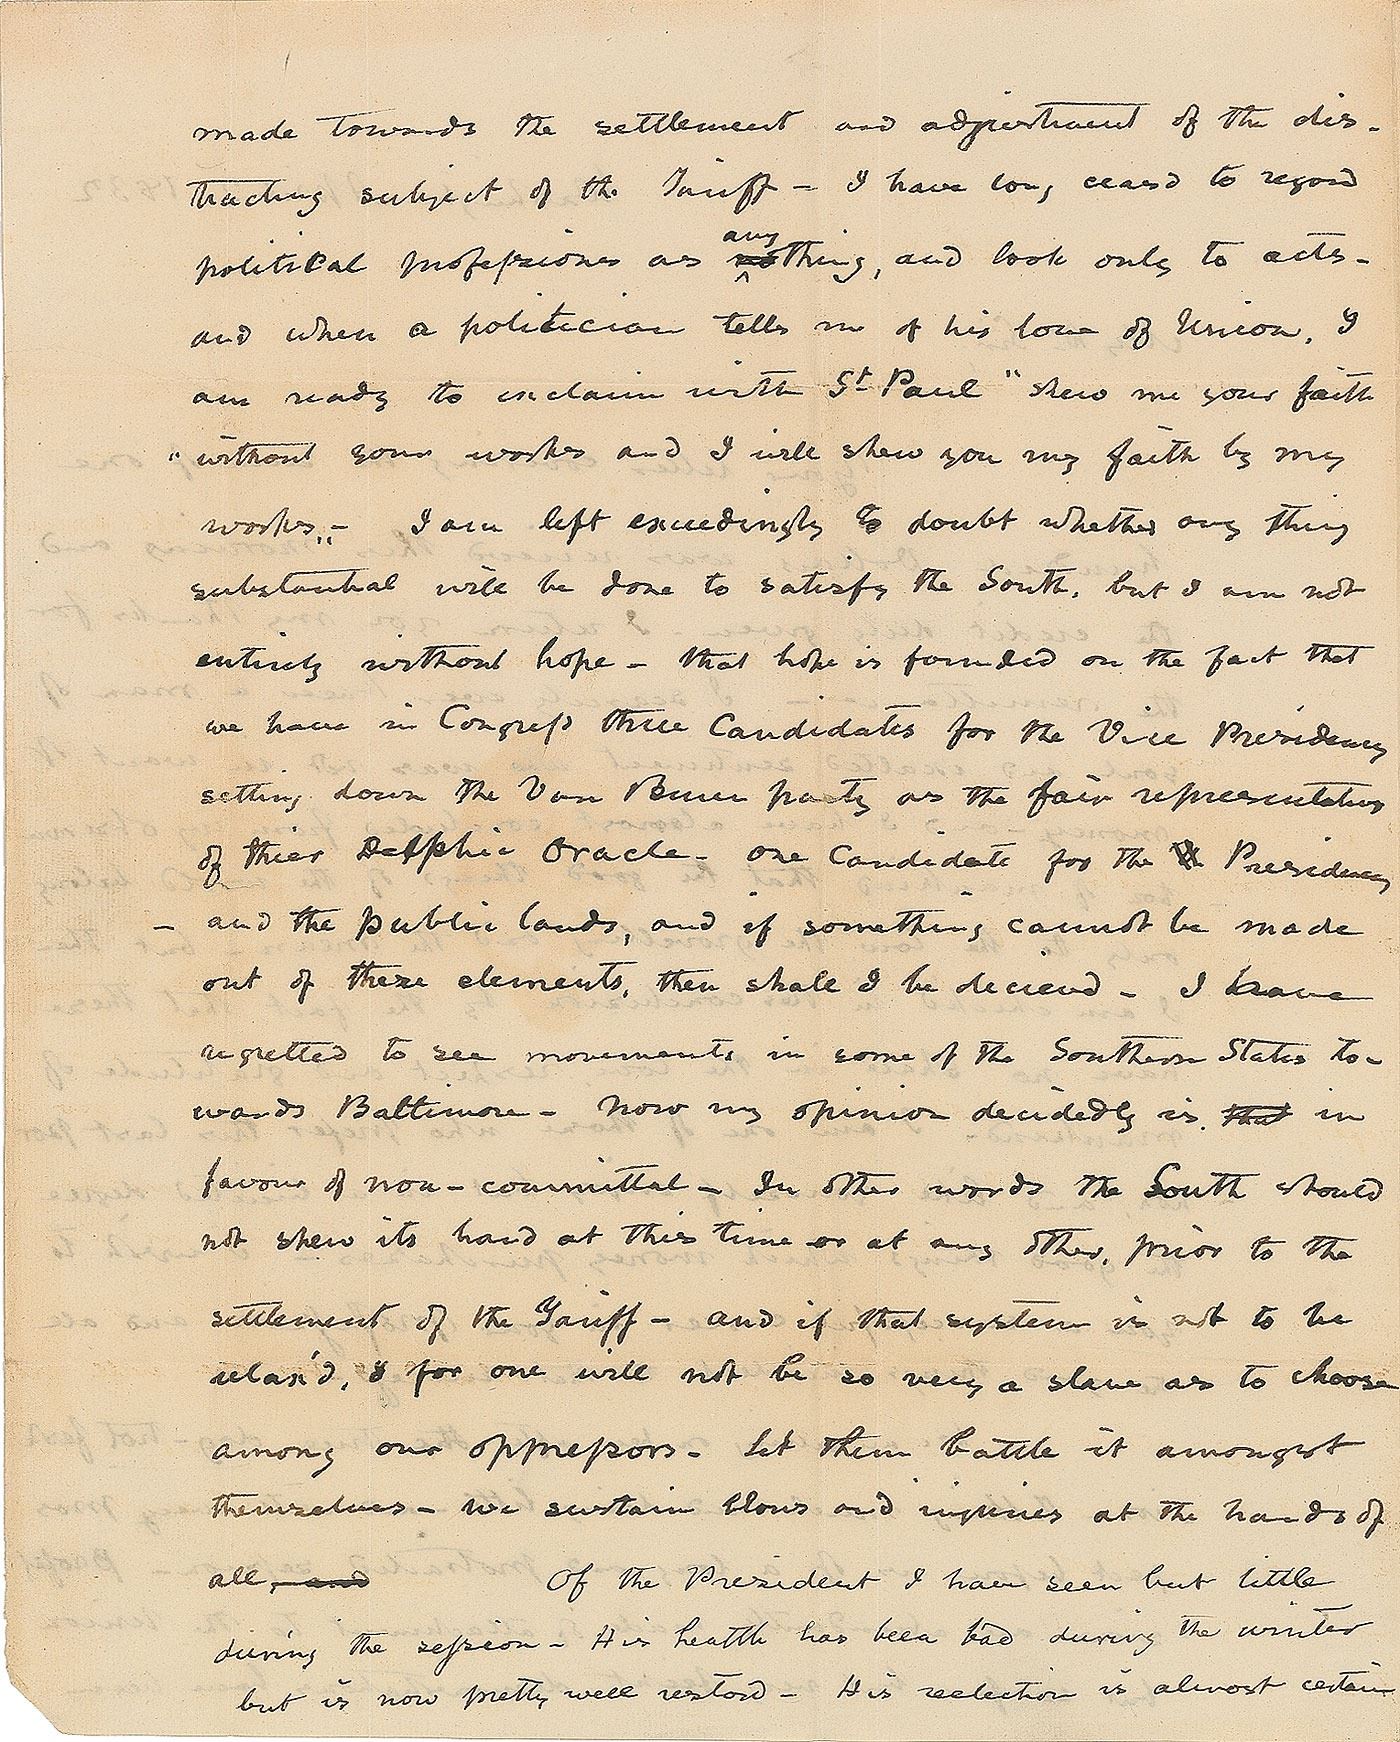 made towards the settlement and adjustment of the dis-
tracting subject of the Tariff - I have long ceasd to regard
political professions as any
nothing, and look only to acts -
and when a politician tells me of his love of Union, I
am ready to exclaim with St Paul "shew me your faith
"without your works and I will shew you my faith by my
works". - I am left exceedingly to doubt whether any thing
substantial will be done to satisfy the South, but I am not
entirely without hope - that hope is founded on the fact that
we have in Congress three Candidates for the Vice Presidency
setting down the Van Buren party as the fair representatives
of thier Delphic Oracle - one Candidate for the Presidency
- and the public lands, and if something cannot be made
out of these elements, then shall I be decievd - I have
regretted to see movements in some of the Southern States to-
wards Baltimore - Now my opinion decidedly is that in
favour of non-committal - In other words the South should
not shew its hand at this time or at any other, prior to the
settlement of the Tariff - and if that system is not to be
relax'd, I for one will not be so very a slave as to choose
among our oppressors - let them battle it amongst
themselves - we sustain blows and injuries at the hands of
all, and Of the President I have seen but little
during the session - His health has been bad during the winter
but is now pretty well restord - His reelection is almost certain